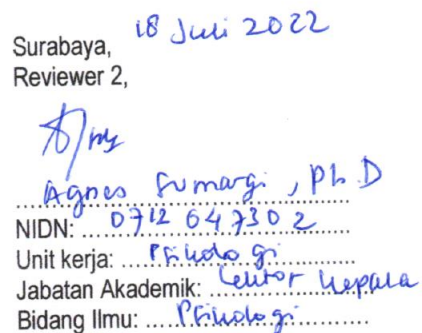 Surabaya, 18 Juli 2022
Reviewer 2,
Agnes Sumargi, Ph.D
NIDN: 0712647302
Unit kerja: Psikologi
Jabatan Akademik: Lektor Kepala
Bidang Ilmu: Psikologi